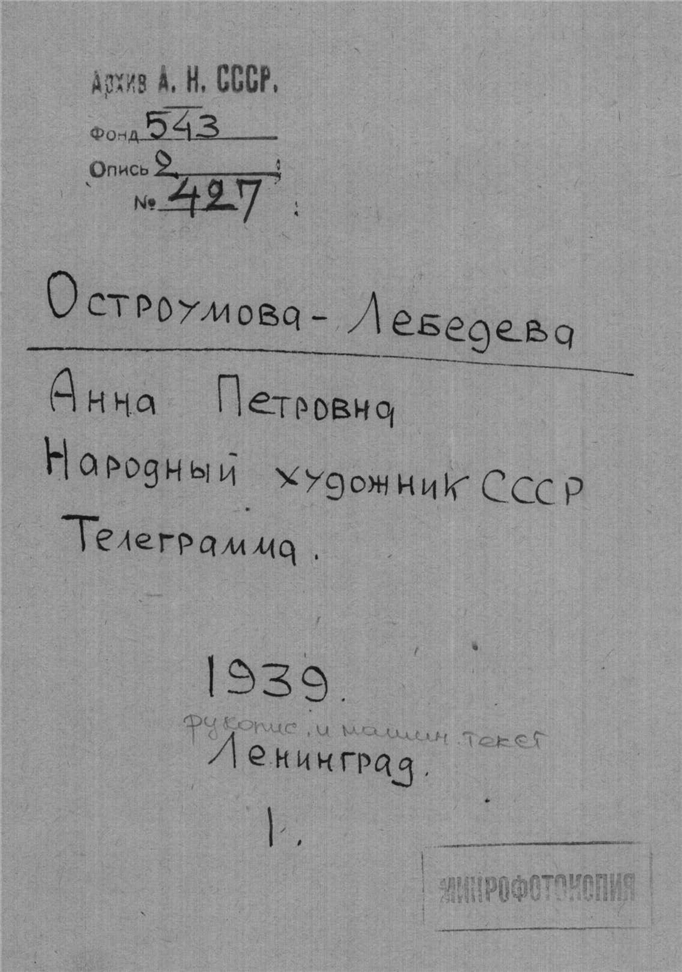 Архив А. Н. СССР.
Фонд 543
Опись 2
№ 427
Остроумова-Лебедева
Анна Петровна
Народный художник СССР
Телеграмма.
1939.
рукопис. и машин. текст
Ленинград.
1.
МИКРОФОТОКОПИЯ